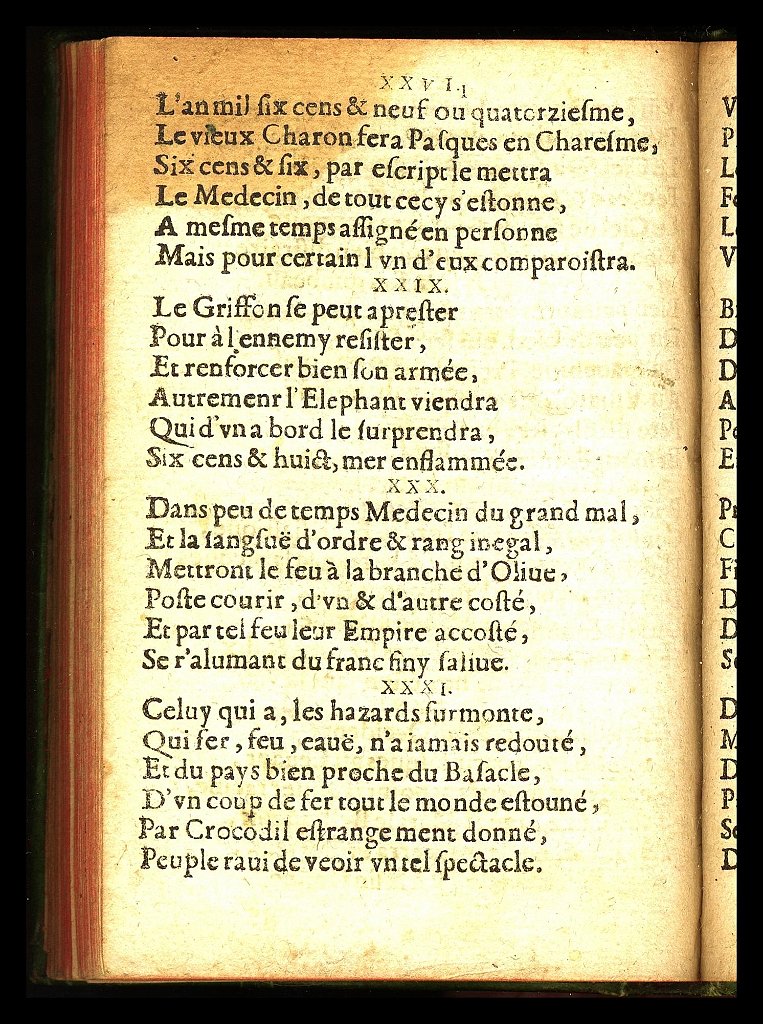 XXVI.
L'an mil ſix cens & neuf ou quatorzieſme,
Le vieux Charon fera Paſques en Chareſme,
Six cens & ſix, par eſcript le mettra
Le Medecin, de tout cecy s'eſtonne,
A meſme temps aſſigné en perſonne
Mais pour certain l vn d'eux comparoiſtra.
XXIX.
Le Griffon ſe peut apreſter
Pour à l'ennemy reſiſter,
Et renforcer bien ſon armée,
Autremenr l'Elephant viendra
Qui d'vn a bord le ſurprendra,
Six cens & huict, mer enflammée.
XXX.
Dans peu de temps Medecin du grand mal,
Et la ſangſuë d'ordre & rang inegal,
Mettront le feu à la branche d'Oliue,
Poſte courir, d'vn & d'autre coſté,
Et par tel feu leur Empire accoſté,
Se r'alumant du franc finy ſaliue.
XXXI.
Celuy qui a, les hazards ſurmonte,
Qui fer, feu, eauë, n'a iamais redouté,
Et du pays bien proche du Baſacle,
D'vn coup de fer tout le monde eſtouné,
Par Crocodil eſtrangement donné,
Peuple raui de veoir vn tel ſpectacle.